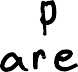 p
are